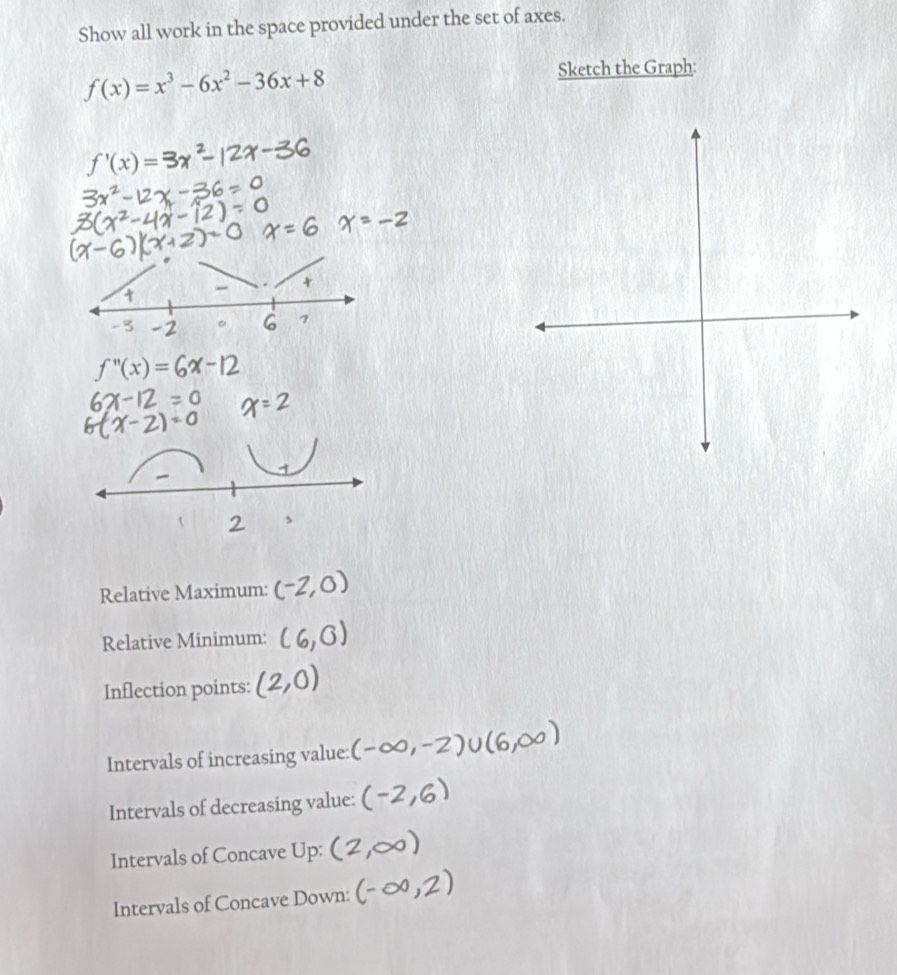 Show all work in the space provided under the set of axes.
f(x) = x³ − 6x² − 36x + 8
Sketch the Graph:
f'(x) = 3x² − 12x − 36
3x² − 12x − 36 = 0
3(x² − 4x − 12) = 0
(x − 6)(x + 2) = 0 x = 6 x = −2
+ − +
−3 −2 0 6 7
f"(x) = 6x − 12
6x − 12 = 0
6(x − 2) = 0 x = 2
− +
1 2 3
Relative Maximum: (−2, 0)
Relative Minimum: (6, 0)
Inflection points: (2, 0)
Intervals of increasing value: (−∞, −2) ∪ (6, ∞)
Intervals of decreasing value: (−2, 6)
Intervals of Concave Up: (2, ∞)
Intervals of Concave Down: (−∞, 2)